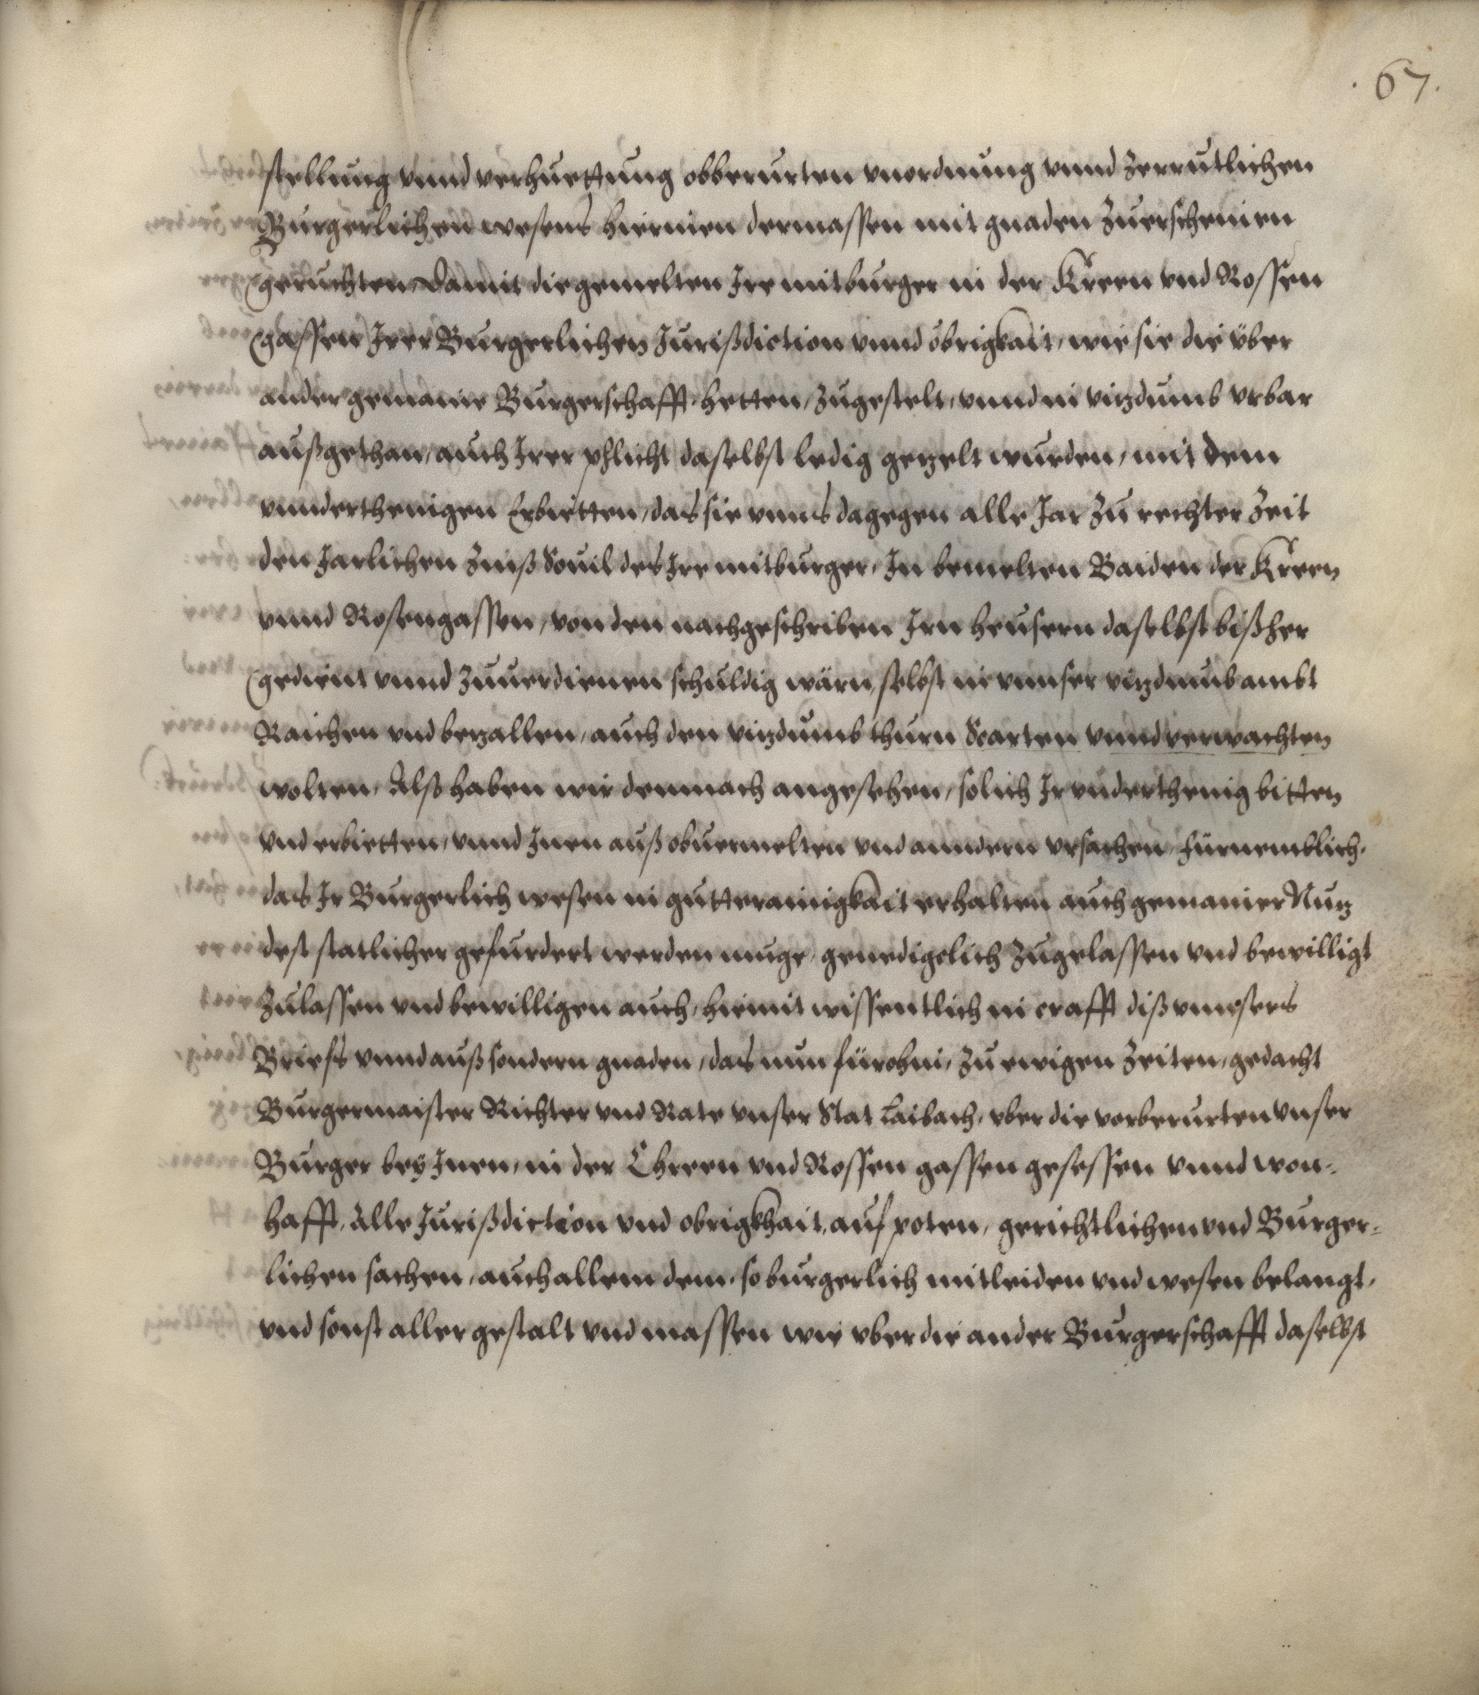 .67.
stellung vnnd verhuettung obberurten vnordnung vnnd zerrutlichen
Burgerlichen wesens hierinen dermassen mit gnaden zuerscheinen
geruchten, damit die gemelten Ire mitburger in der Khreen vnd Rossen
gassen Irer Burgerlichen Jurißdiction vnnd obrigkait, wie sie die über
ander gemaine Burgerschafft, hetten, zugestelt, vnnd in vizdumb vrbar
außgethan, auch Irer phlicht daselbst ledig gezelt wurden, mit dem
vnnderthenigen Erbietten, das sie vnns dagegen alle Jar zu rechter Zeit
den Jarlichen Zinß Souil des Ire mitburger, In bemelten Baiden der Khreen
vnnd Rosengassen, von den nachgeschriben Irn heusern daselbst bißher
gedient vnnd zuuerdienen schuldig wärn, selbst in vnnser vizdumbambt
Raichen vnd bezallen, auch den vizdumb thurn Warten vnnd verwachten
wolten, Alß haben wir demnach angesehen, solich Ir vnderthenig bitten
vnd erbietten, vnnd Inen auß obuermelten vnd anndern vrsachen, fürnemblich,
das Ir Burgerlich wesen in gutter ainigkait erhalten auch gemainer Nuz
dest statlicher gefurdert werden muge, genedigclich zugelassen vnd bewilligt
zulassen vnd bewilligen auch, hiemit wissentlich in crafft diß vnnsers
Briefs vnnd auß sondern gnaden, das nun fürohin, zu ewigen Zeiten, gedacht
Burgermaister Richter vnd Rate vnser Stat Laibach, vber die vorberurten vnser
Burger bey Inen, in der Chreen vnd Rossen gassen gesessen vnnd won-
hafft, Alle Jurißdiction vnd obrigkhait, auf poten, gerichtlichen vnd Burger-
lichen sachen, auch allem dem, so burgerlich mitleiden vnd wesen belangt,
vnd sonst aller gestalt vnd massen wie vber die ander Burgerschafft daselbst